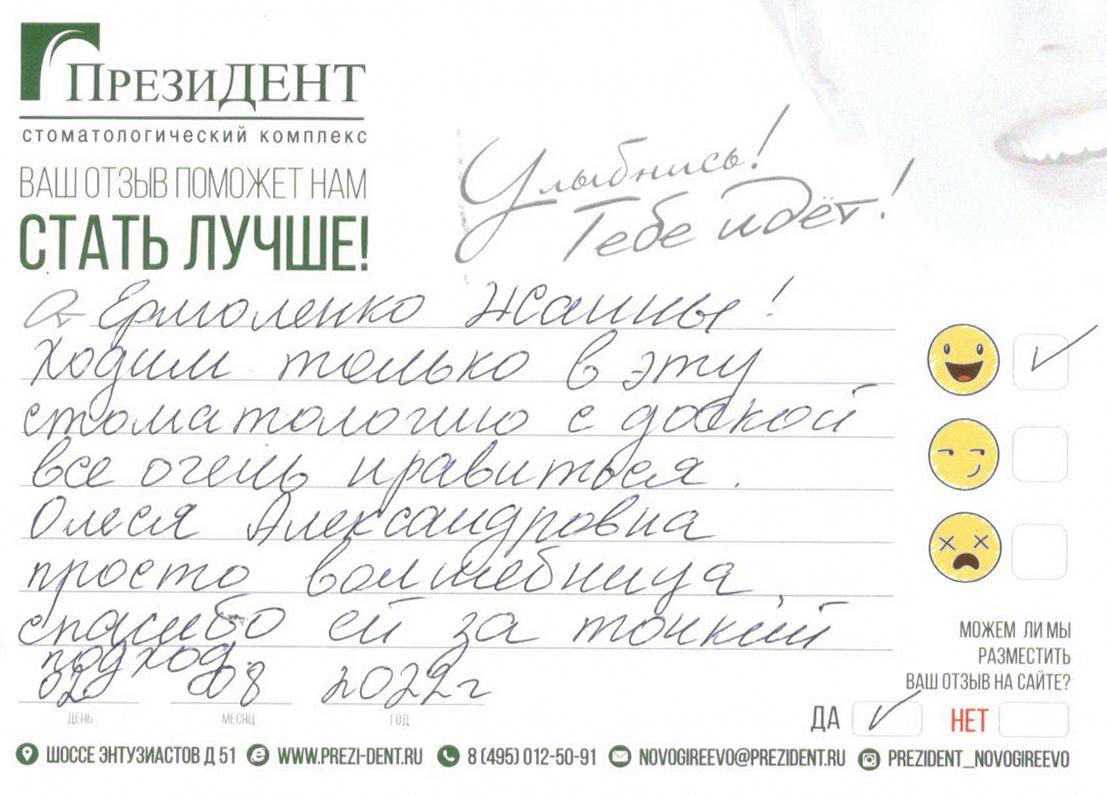 ПрезиДЕНТ
стоматологический комплекс
ВАШ ОТЗЫВ ПОМОЖЕТ НАМ
СТАТЬ ЛУЧШЕ!
Улыбнись!
Тебе идёт!
От Ермоленко Жанны!
Ходим только в эту
стоматологию с дочкой
все очень нравиться.
Олеся Александровна
просто волшебница,
спасибо ей за тонкий
подход.
02 08 2022г
ДЕНЬ МЕСЯЦ ГОД
МОЖЕМ ЛИ МЫ
РАЗМЕСТИТЬ
ВАШ ОТЗЫВ НА САЙТЕ?
ДА НЕТ
ШОССЕ ЭНТУЗИАСТОВ Д 51 WWW.PREZI-DENT.RU 8 (495) 012-50-91 NOVOGIREEVO@PREZIDENT.RU PREZIDENT_NOVOGIREEVO